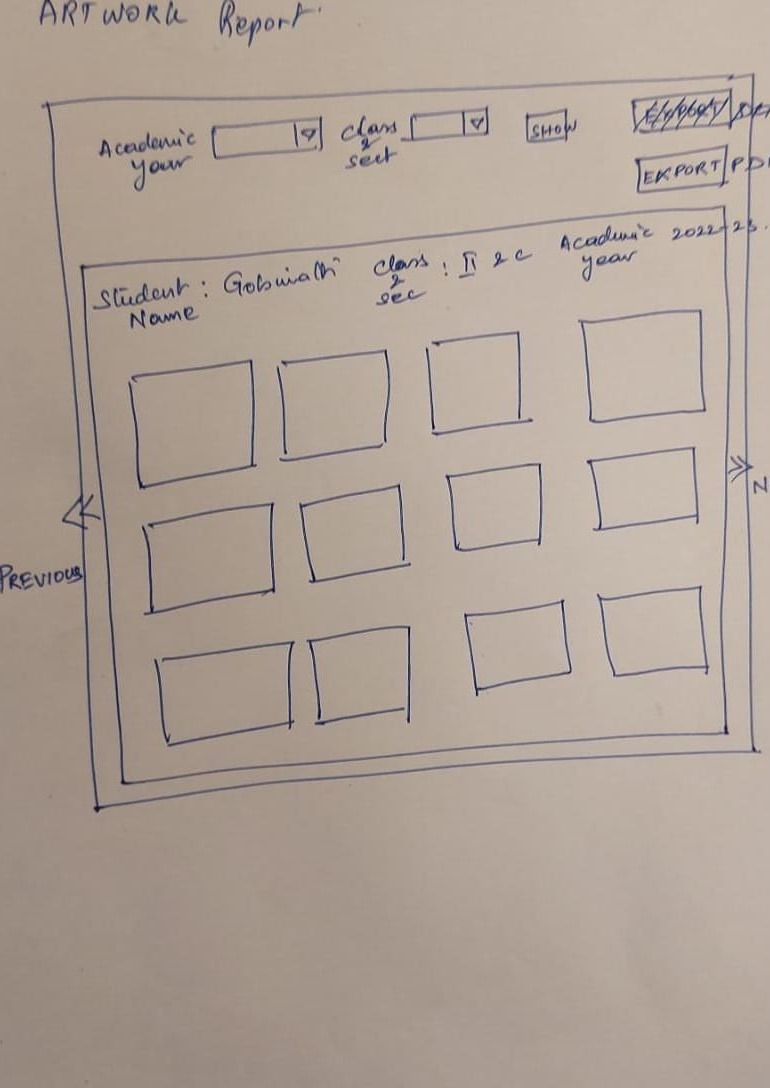 ARTWORK Report.
Academic year
class & sect
SHOW
EXPORT PD
Student Name :
class & sec : II & C
Academic year 2022-23.
PREVIOUS
N